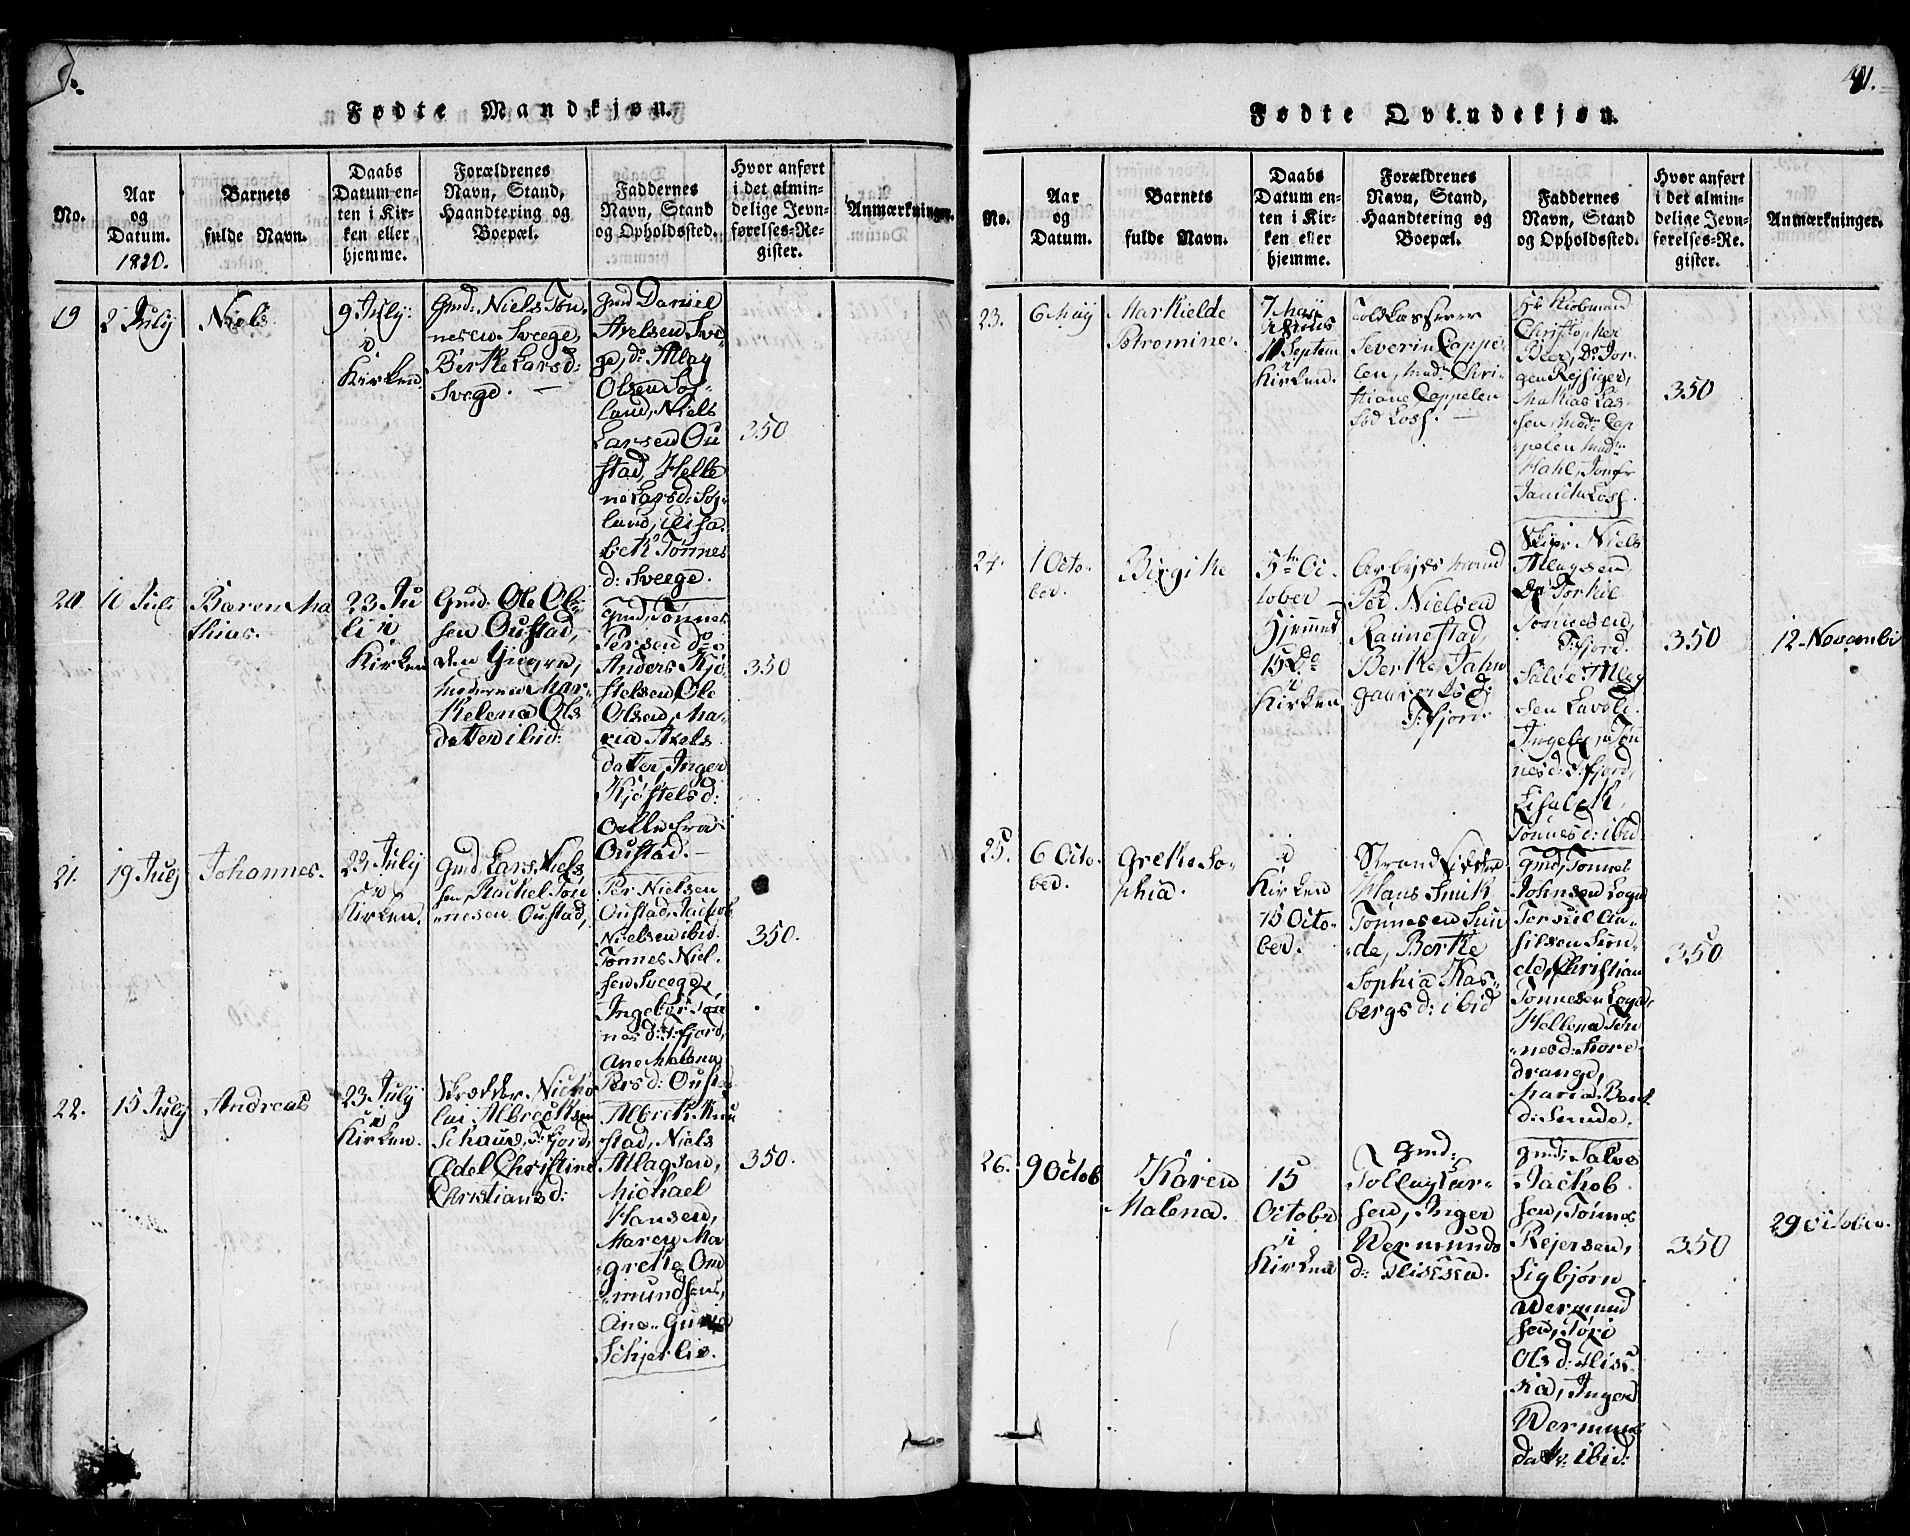 Fødte Mandkjøn.
No.
Aar
og
Datum.
1820.
Barnets
fulde Navn.
Daabs
Datum en-
ten i Kir-
ken eller
hjemme.
Forældrenes
Navn, Stand,
Haandtering og
Boepæl.
Faddernes
Navn, Stand
og Opholdssted.
Hvor anført
i det almin-
delige Jevn-
førelses-Re-
gister.
Anmærkninger.
19
2 July
Niels
9 July:
i
Kirken
Gmd: Niels Tøn-
nesen Svege,
Birthe Larsd:
Svege. —
Gmd Daniel
Axelsen Sve-
ge, do Atlag
Olsen Søg-
land, Niels
Larsen Ou-
stad, Helle
ne Larsd: Søg-
land, Elisa-
beth Tønnes
d: Sveege.
350
20
10 Juli
Baren Ma
thias.
23 Ju
li i
Kirken
Gmd: Ole Ol-
sen Oustad,
den Yngre,
moderen Mar-
thelena Ols
datter ibid:
Gmd, Tønnes
Persen do
Anders Kjø-
stelsen, Ole
Olsen, Ma-
ria Axels
datter, Inger
Kjøstels d:
Oelle fra
Oustad. —
350
21.
19 Julj
Johannes.
23 July
i
Kirken.
Gmd Lars Niels
sen, Rachel Tøn
nesen Oustad,
Per Nielsen
Oustad, Jachob
Nielsen ibid.
Tønnes Niel-
sen Sveege,
Ingebor Tøn
nes d: F:fjord,
Ane Malena
Pers d: Oust
350.
22.
15 July
Andreas
23 July
i
Kirken.
Skrædder Nicho
lai Albrecktsen
Schaus, F:fjord,
Edel Christine
Christiansd:
Albreth Knu
stad, Niels
Atlagsen,
Michael
Hansen,
Maren Ma
grethe Om
mundsens,
Ane Gurie
Schjerlie.
350.
41.
Fødte Qvindekjøn.
No.
Aar
og
Datum.
Barnets
fulde Navn.
Daabs
Datum en-
ten i Kir-
ken eller
hjemme.
Forældrenes
Navn, Stand,
Haandtering og
Boepæl.
Faddernes
Navn, Stand
og Opholdssted.
Hvor anført
i det almin-
delige Jevn-
førelses-Re-
gister.
Anmærkninger.
23.
6 May
Markielde
Petromine.
7 Maij
Hjemes
11 Septem
i
Kirken.
Toldkasserer
Severin Cappe-
len, Mad: Chri-
stiane Cappelen
fød Loss.
Hr Kiobmand
Christopher
Beer, Do Jør-
gen Rejsiger,
Mathias Las-
sen, Madm Cap-
pelen, Madm
Hahl, Jomfr
Loss.
350
24.
1 Octo-
ber.
Birgithe
5te Oc-
tober
Hjemmet
15 Do
i
Kirken
Arbejdsmand
Per Nielsen
Raunestad,
Berthe
F:fjord.
Skipr Niels
Atlagsen,
Do Torkil
Tønnesen,
F:fjord.
Salve Atlag
sen
Ingeborg Tøn
nesd: F:fjord,
Lisabeth
Tønnes d: ibid.
350
12 Novembr
25.
6 Octo-
ber.
Grethe So-
phia.
i
Kirken
15 Octo-
ber.
Strandsidder
Hans Smith
Tønnesen Sun
de, Berthe
Sophia Kas-
bergs d: ibid
Gmd, Tønnes
Johnsen Logn
Torkild
Sun-
de, Christian
Tønnesen Logn,
Hellena Tøn
nesd: Hore-
drange,
Maria Bent
d: Sunde.
350
26.
9 Octob
Karen
Malena.
15
October
i
Kirken
Gmd:
Tollag Lar-
sen, Inger
Wermunds
d:
Gmd: Salve
Jachob
sen, Tønnes
Rejersen,
Sigbjørn
Wermund
sen, Tori
Ols d:
Inger
Wermun
datr. ibid:
350
29 October.